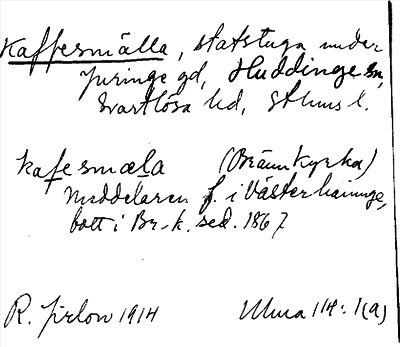 Kaffesmälla, statstuga under
Juringe gd, Huddinge sn,
Svartlösa hd, Sthms l.
kafesmæla (Brännkyrka)
Meddelaren f. i Västerhaninge,
bott i Br-k. sed. 1867
R. Jirlow 1914 Ulma 114:1(a)